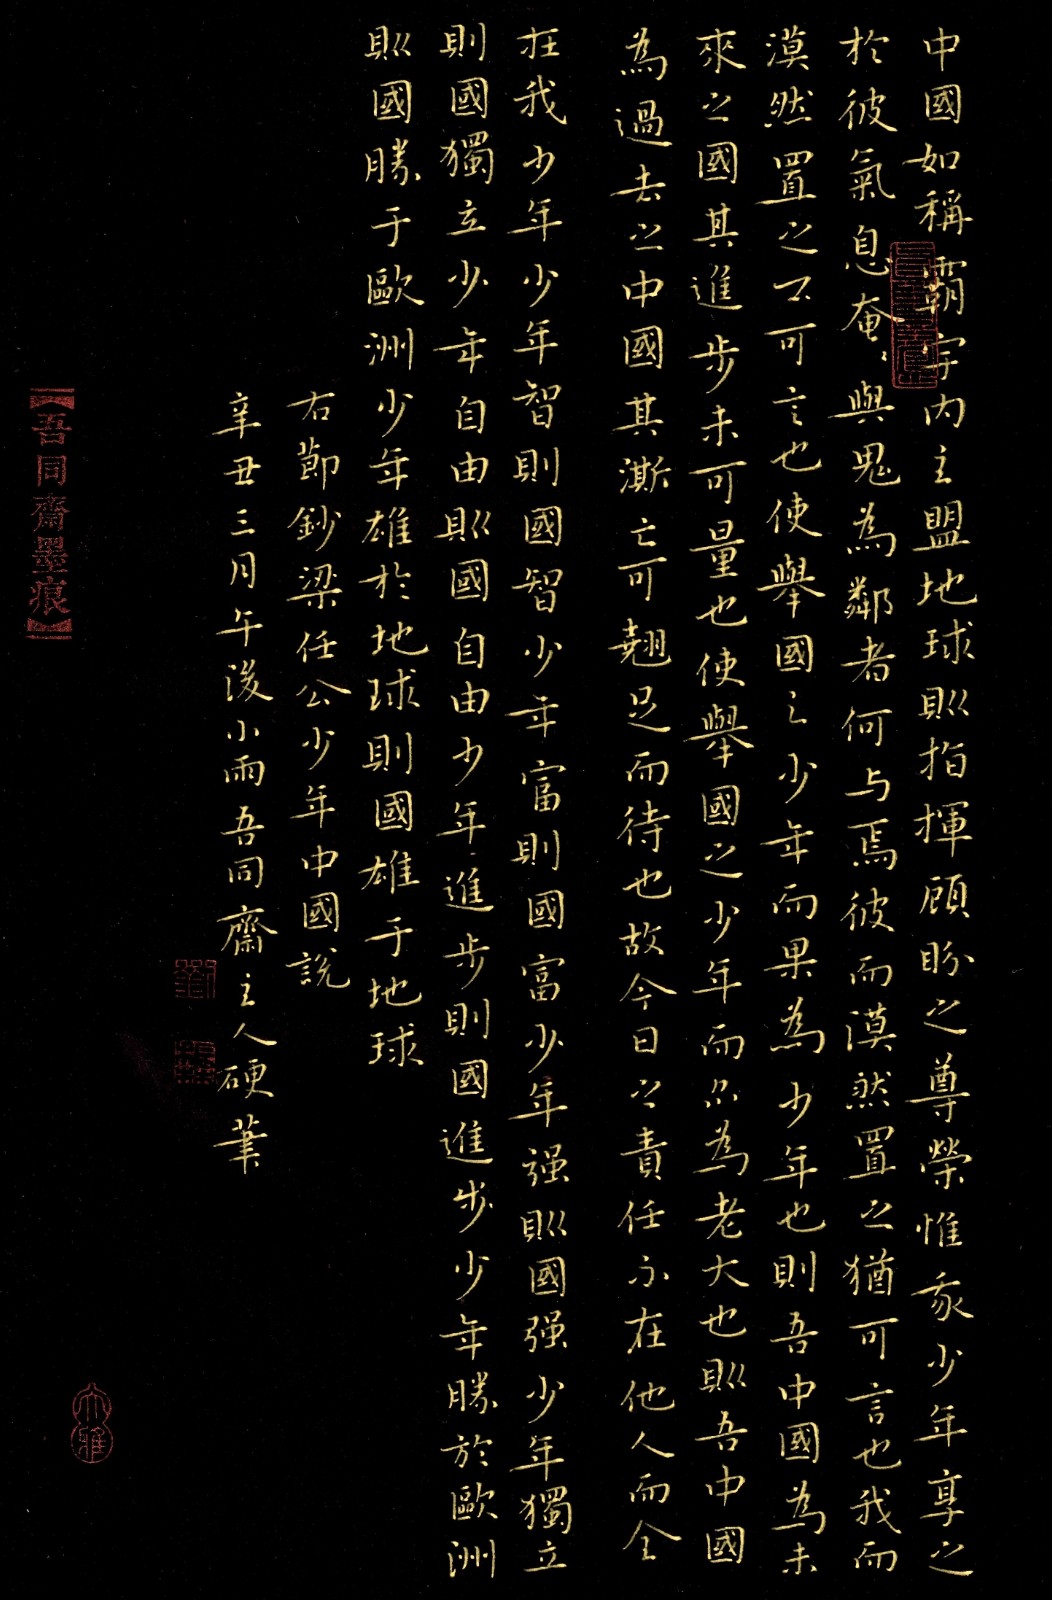 中國如稱霸宇内主盟地球則指揮顧盼之尊榮惟我少年享之
於彼氣息奄、與鬼為鄰者何与焉彼而漠然置之猶可言也我而
漠然置之不可言也使舉國之少年而果為少年也則吾中國為未
來之國其進步未可量也使舉國之少年而亦為老大也則吾中國
為過去之中國其澌亡可翹足而待也故今日之責任不在他人而全
在我少年少年智則國智少年富則國富少年强則國强少年獨立
則國獨立少年自由則國自由少年進步則國進步少年勝於歐洲
則國勝于歐洲少年雄於地球則國雄于地球
右節鈔梁任公少年中國說
辛丑三月午後小雨吾同齋主人硬筆
【吾同齋墨痕】
大雅